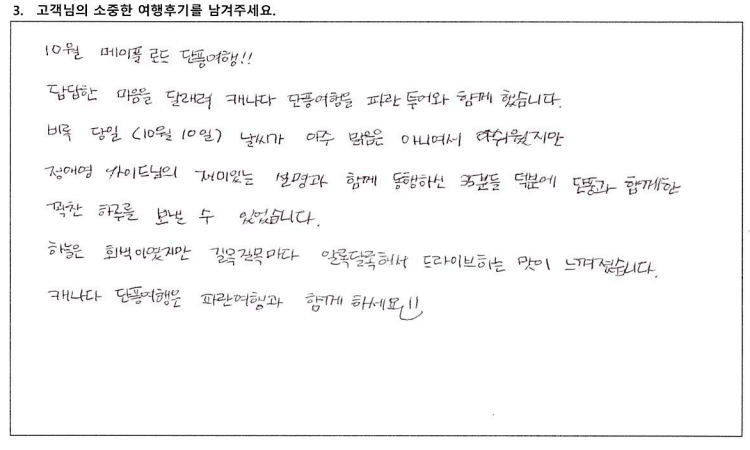 3. 고객님의 소중한 여행후기를 남겨주세요.
10월 메이플 로드 단풍여행!!
답답한 마음을 달래려 캐나다 단풍여행을 파란 투어와 함께 했습니다.
비록 당일 (10월 10일) 날씨가 아주 맑음은 아니여서 아쉬웠지만
정애영 가이드님의 재미있는 설명과 함께 동행하신 35분들 덕분에 단풍과 함께한
꽉찬 하루를 보낼 수 있었습니다.
하늘은 회색이였지만 길목길목마다 알록달록해서 드라이브하는 맛이 느껴졌습니다.
캐나다 단풍여행은 파란여행과 함께 하세요!!